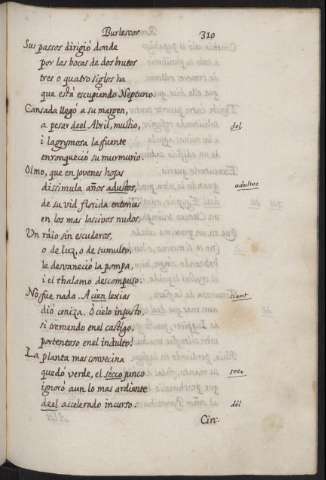 Burlescos 310
Sus passos dirigió donde
por las bocas de dos brutos
tres o quatro siglos ha
que està escupiendo Neptuno.
Cansada llegó a su margen,
a pesar deal Abril, mustio, del
i lagrymosa la fuente
enronqueciò su murmurio
Olmo, que en jovenes hojas
dissimula años adustos, adultos
de su vid florida entonces
en los mas lascivos nudos.
Un ràio sin escuderos,
o de luz, o de tumulto,
le desvaneciò la pompa,
i el thalamo descompuso.
No fue nada. A cien lexias
diò ceniza. O cielo injusto,
si tremendo en el castigo,
portentoso en el indulto!
La planta mas convecina
quedò verde, el secco junco seco
ignorò aun lo mas ardiente
deel accelerado incurso: dèl
Cin-